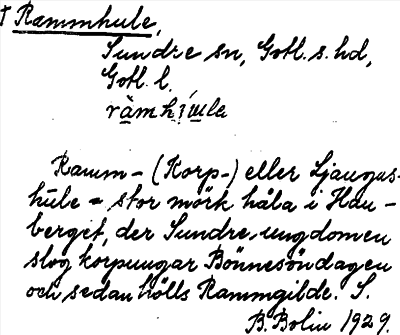 † Rammhule,
Sundre sn, Gotl. s. hd,
Gotl. l.
Ramm- (Korp-) eller Ljaugus-
hule = stor mörk håla i Hau-
berget, der Sundre-ungdomen
slog korpungar Bönnesöndagen
och sedan hölls Rammgilde. S.
B. Bolin 1929.